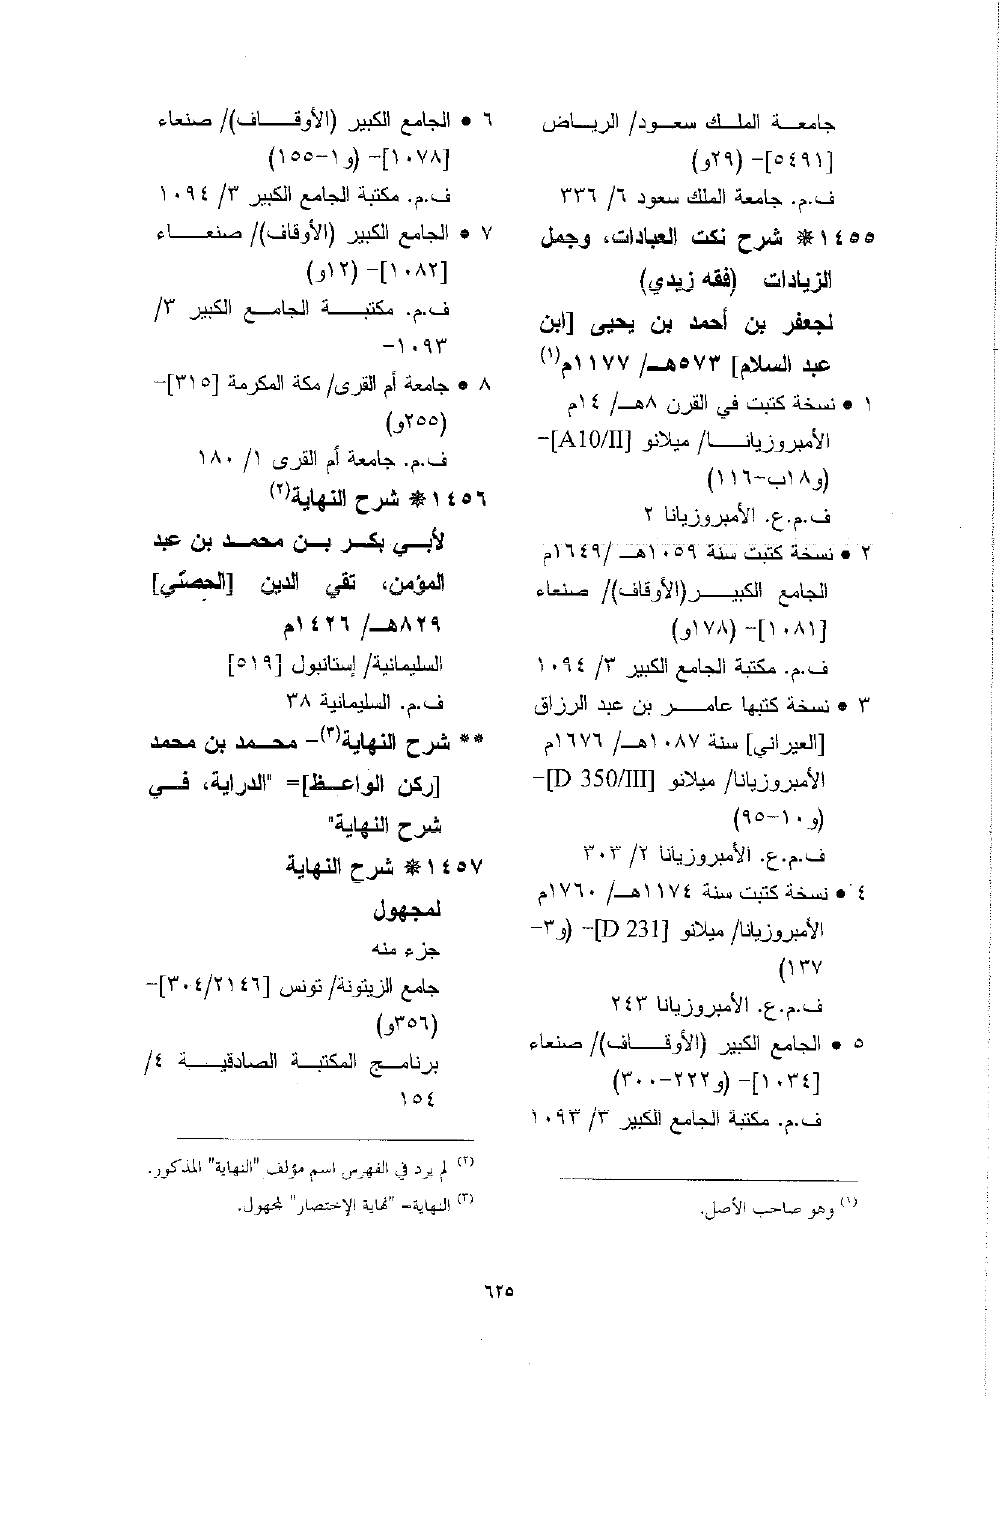 جامعة الملك سعود/ الرياض
[٥٤٩١]- (٢٩و)
ف.م. جامعة الملك سعود ٦/ ٣٣٦
١٤٥٥* شرح نكت العبادات، وجمل
الزيادات (فقه زيدي)
لجعفر بن أحمد بن يحيى [ابن
عبد السلام] ٥٧٣هـ/ ١١٧٧م(١)
١ • نسخة كتبت في القرن ٨هـ/ ١٤م
الأمبروزيانا/ ميلانو [A10/II]-
(و١٨ب-١١٦)
ف.م.ع. الأمبروزيانا ٢
٢ • نسخة كتبت سنة ١٠٥٩هـ/ ١٦٤٩م
الجامع الكبير(الأوقاف)/ صنعاء
[١٠٨١]- (١٧٨و)
ف.م. مكتبة الجامع الكبير ٣/ ١٠٩٤
٣ • نسخة كتبها عامر بن عبد الرزاق
[العيراني] سنة ١٠٨٧هـ/ ١٦٧٦م
الأمبروزيانا/ ميلانو [D 350/III]-
(و١٠-٩٥)
ف.م.ع. الأمبروزيانا ٢/ ٣٠٣
٤ • نسخة كتبت سنة ١١٧٤هـ/ ١٧٦٠م
الأمبروزيانا/ ميلانو [D 231]- (و٣-
١٣٧)
ف.م.ع. الأمبروزيانا ٢٤٣
٥ • الجامع الكبير (الأوقاف)/ صنعاء
[١٠٣٤]- (و٢٢٢-٣٠٠)
ف.م. مكتبة الجامع الكبير ٣/ ١٠٩٣
(١) وهو صاحب الأصل.
٦ • الجامع الكبير (الأوقاف)/ صنعاء
[١٠٧٨]- (و١-١٥٥)
ف.م. مكتبة الجامع الكبير ٣/ ١٠٩٤
٧ • الجامع الكبير (الأوقاف)/ صنعاء
[١٠٨٢]- (١٢و)
ف.م. مكتبة الجامع الكبير ٣/
١٠٩٣-
٨ • جامعة أم القرى/ مكة المكرمة [٣١٥]-
(٢٥٥و)
ف.م. جامعة أم القرى ١/ ١٨٠
١٤٥٦* شرح النهاية(٢)
لأبي بكر بن محمد بن عبد
المؤمن، تقي الدين [الحصني]
٨٢٩هـ/ ١٤٢٦م
السليمانية/ إستانبول [٥١٩]
ف.م. السليمانية ٣٨
** شرح النهاية(٣)- محمد بن محمد
[ركن الواعظ]= "الدراية، في
شرح النهاية"
١٤٥٧* شرح النهاية
لمجهول
جزء منه
جامع الزيتونة/ تونس [٣٠٤/٢١٤٦]-
(٣٥٦و)
برنامج المكتبة الصادقية ٤/
١٥٤
(٢) لم يرد في الفهرس اسم مؤلف "النهاية" المذكور.
(٣) النهاية- "نهاية الإختصار" لمجهول.
٦٢٥